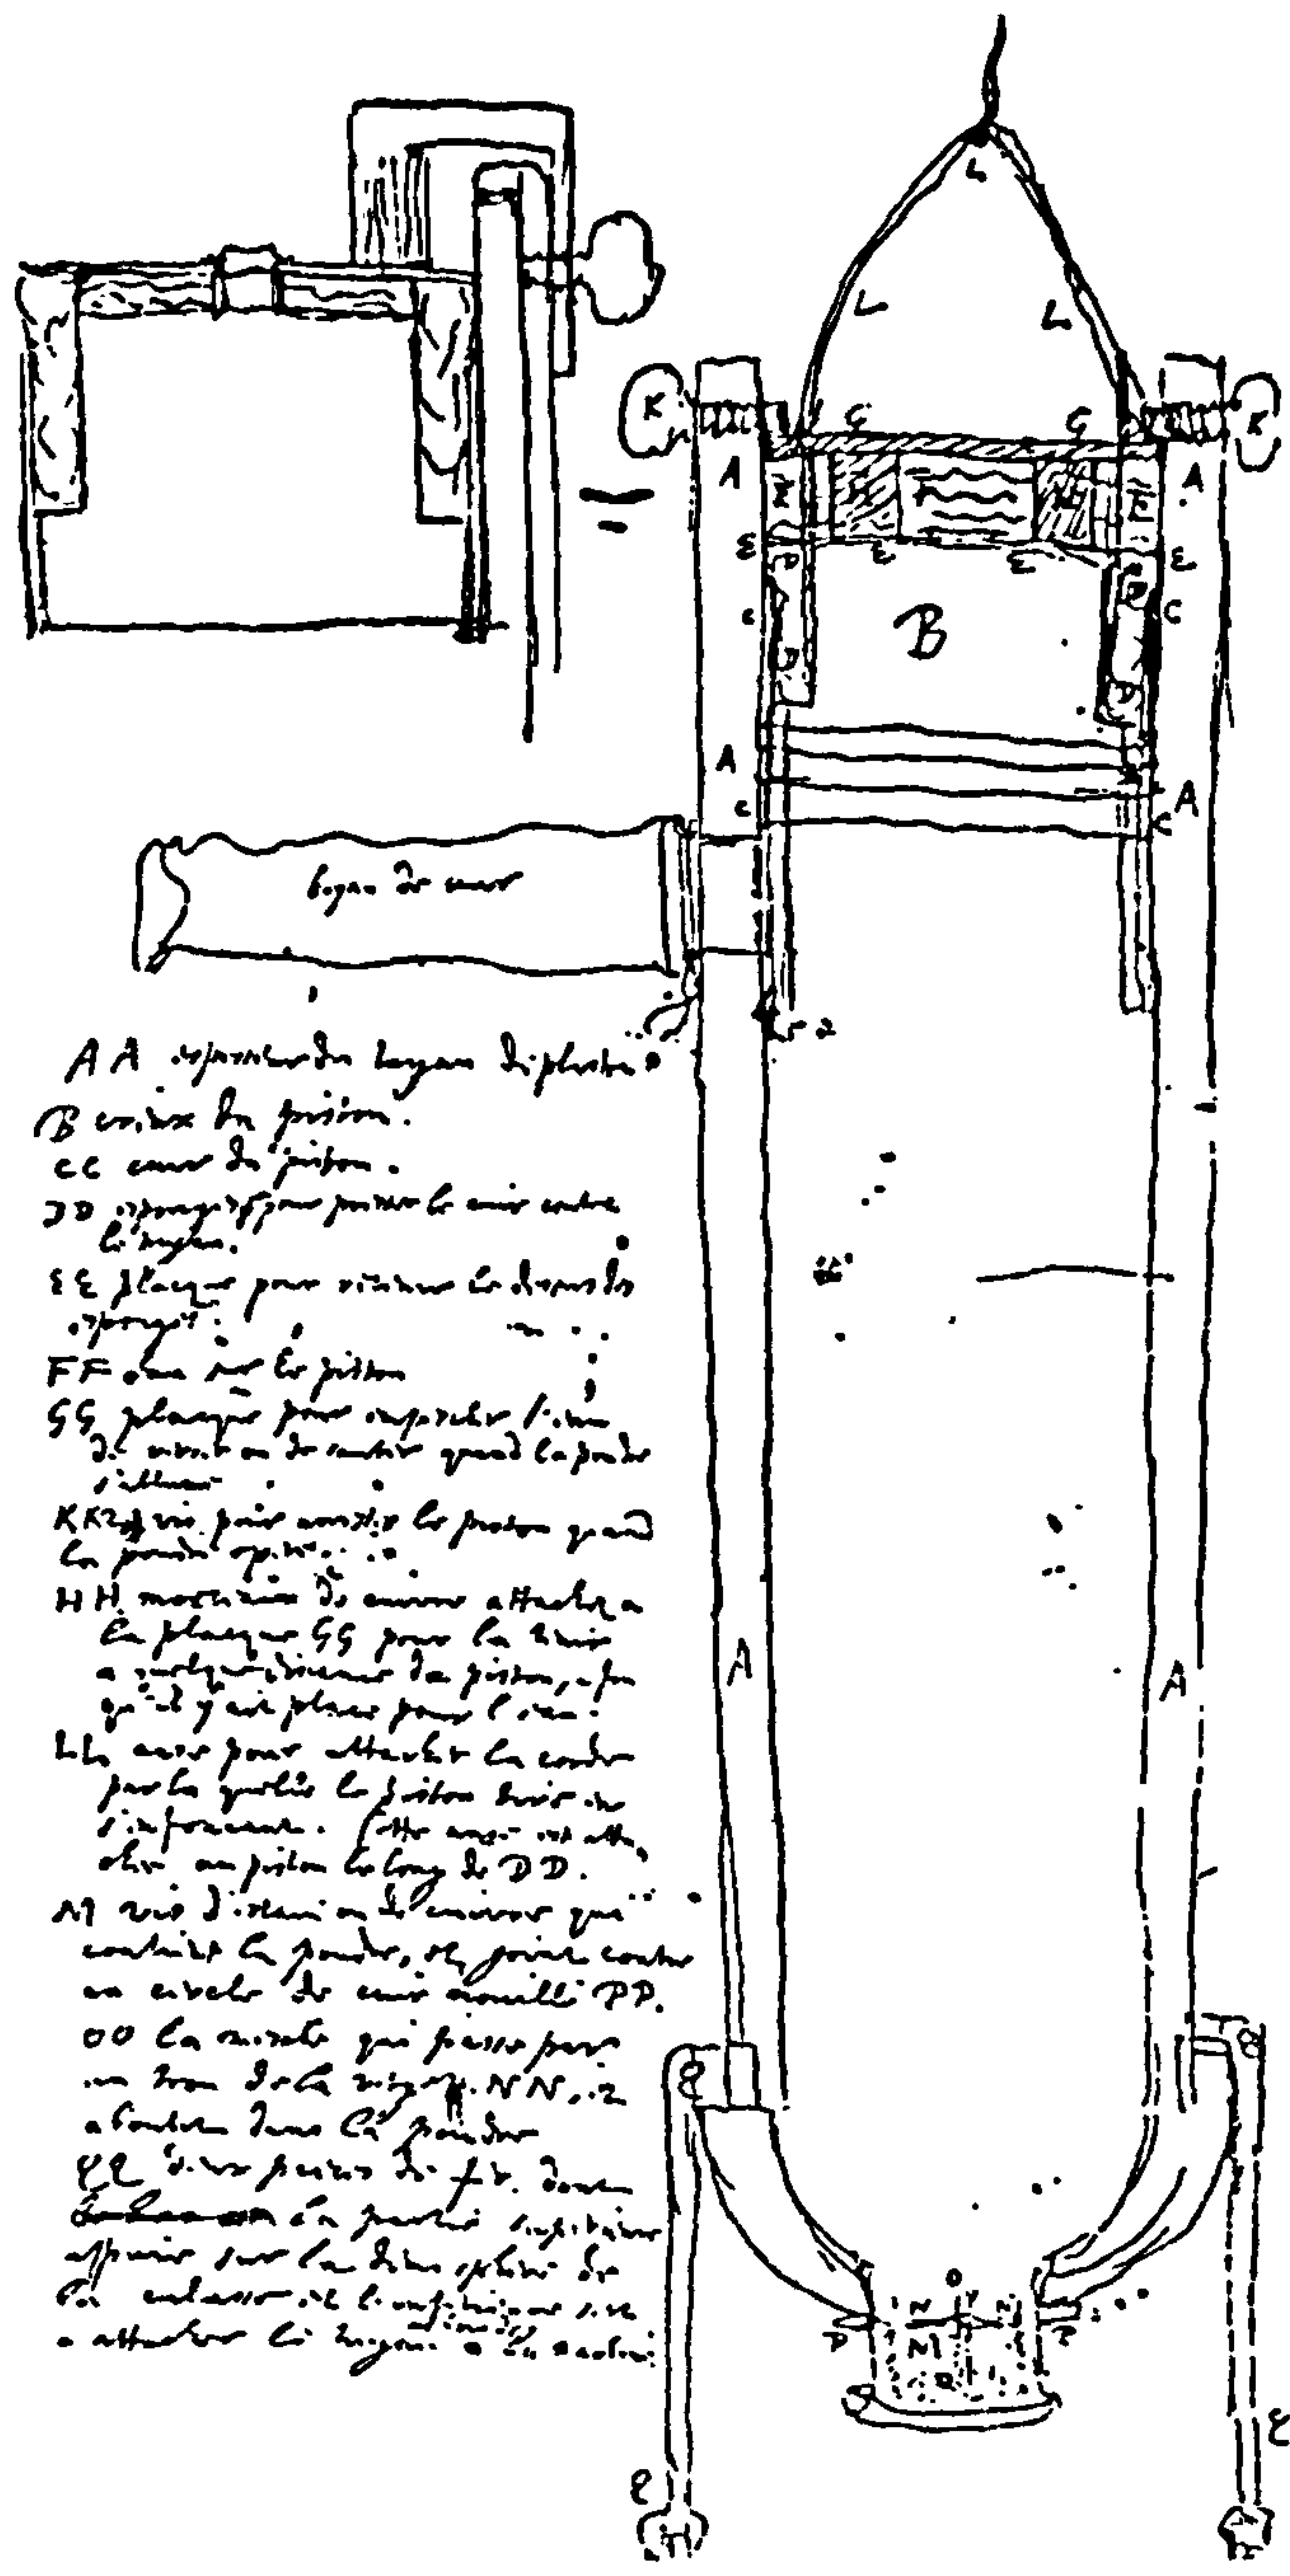 L
L L
K G G K
A A
E E E E
D D
B
C C
D D
A A
C C
boyau de cuir
2
AA espaisseur du tuyau
B creux du piston.
CC cuir du piston.
DD esponges pour presser le cuir contre
le tuyau.
EE placque pour retenir le dessus des
esponges.
FF eau sur le piston
GG placque pour empescher l'eau
de ou de sauter quand la poudre
s'allume
KK vis pour arrester le piston quand
la poudre
HH morceaux de cuivre attachez a
la placque GG pour la tenir
a quelque distance du piston, afin
qu'il y ait place pour l'eau.
LL anse pour attacher la corde
par la quelle le piston tire en
s'enfoncant. Cette anse est atta
chee au piston le long de DD.
M vis d'estain ou de cuivre qui
contient la poudre, et joint contre
un circle de cuir mouillè PP.
OO la mesche qui passe par
un trou de la NN, et
aboutit dans la poudre
QQ deux pieces de fer dont
la partie superieure
appuie sur la demisphere de
la culasse et l'inferieure sert
a attacher le tuyau a la
A A
Q Q
O
N N
P M P
Q Q